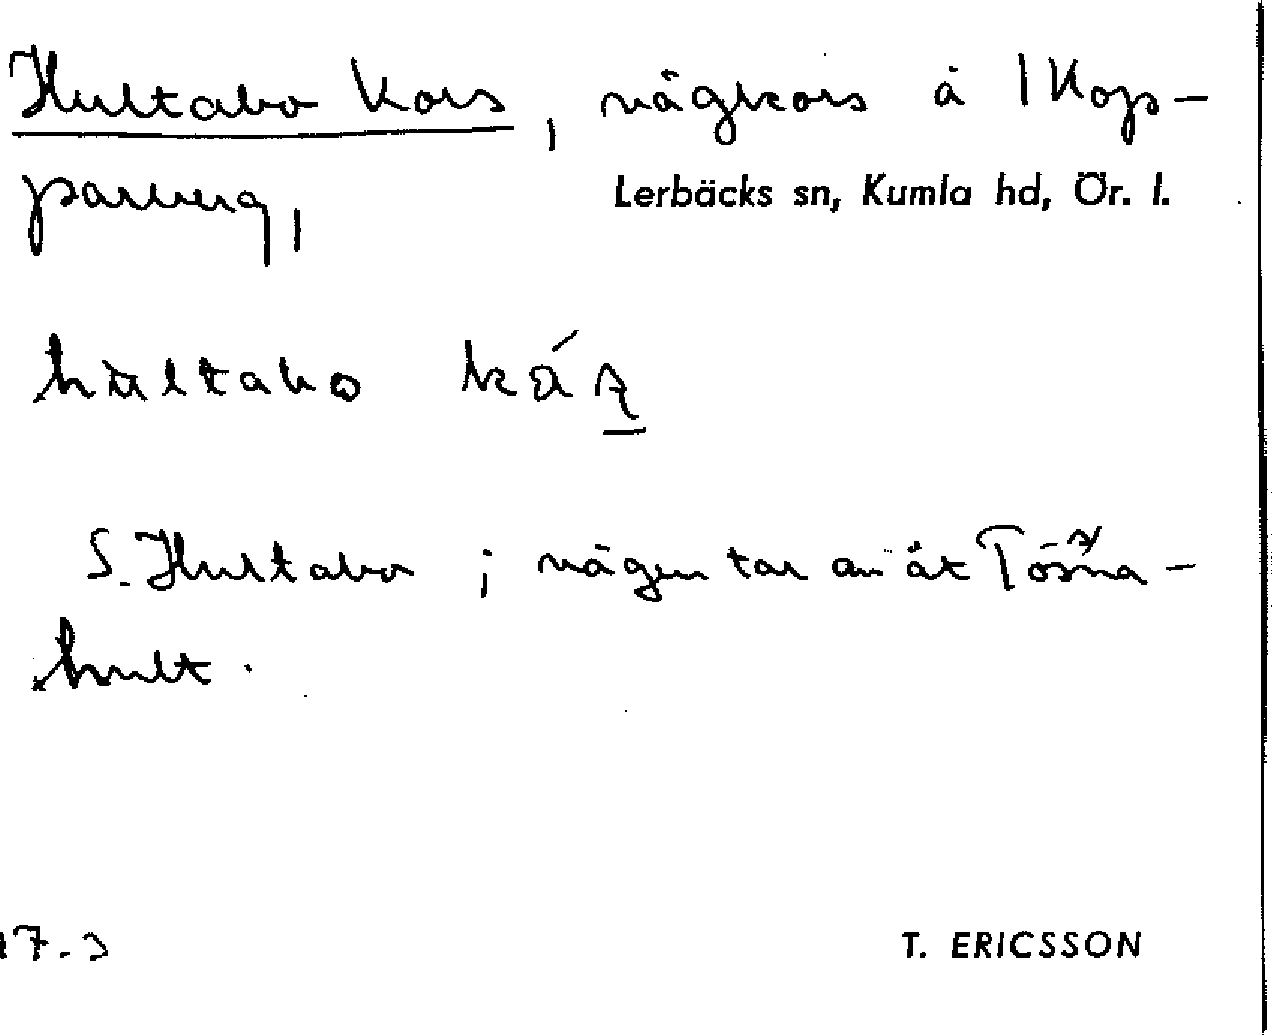 Hultabo Kors, vägkors å 1 Kop-
parberg,
Lerbäcks sn, Kumla hd, Ör. l.
hultabo
S. Hultabo ; vägen tar av åt
hult.
T. ERICSSON